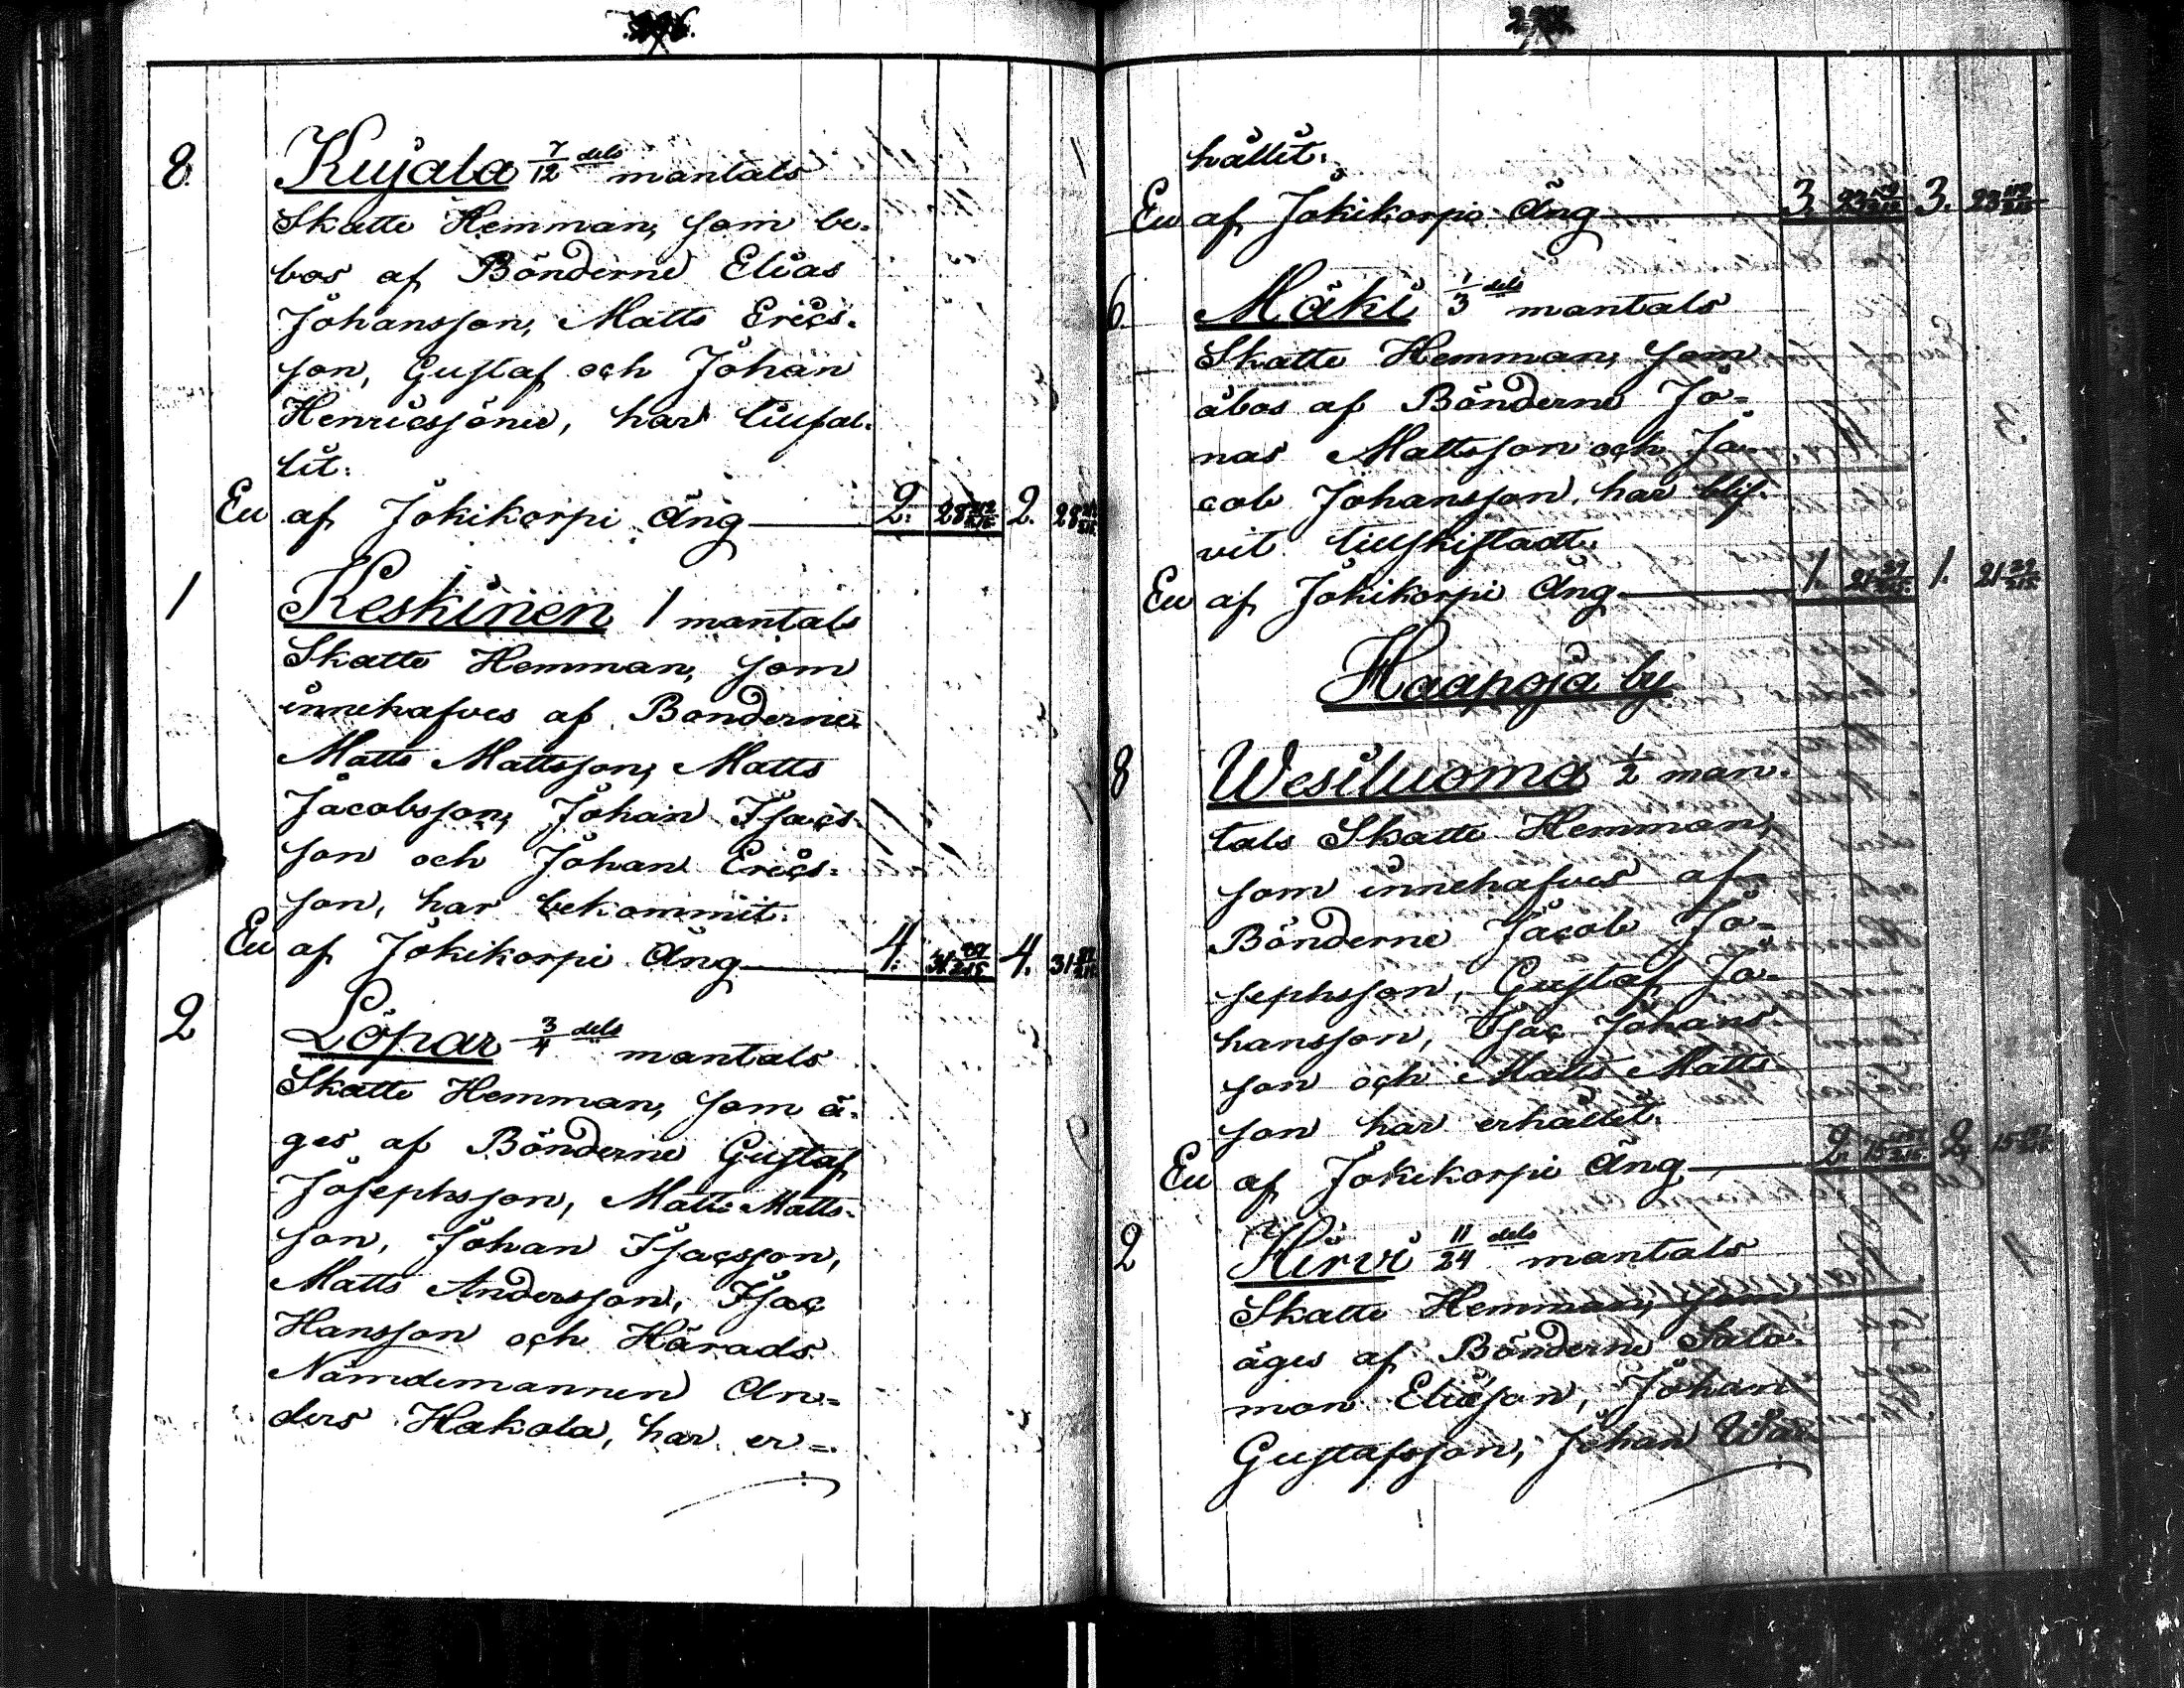 8. Kujala 7/12 dels mantals
Skatte Hemman, som be-
bos af Bönderne Elias
Johansson, Matts Erics-
son, Gustaf och Johan
Henricssöner, har tillfal-
lit.
Eu af Jokikorpi Äng 2. 28 212/215 2. 28
1 Keskinen 1 mantals
Skatte Hemman, som
innehafves af Bonderne
Matts Mattsson, Matts
Jacobsson, Johan Isacs-
son och Johan Erics-
son, har bekommit.
Eu af Jokikorpi Äng 4. 31 4. 31
2 Löpar 3/4 dels mantals
Skatte Hemman, som ä-
ges af Bönderne Gustaf
Josephsson, Matts Matts-
son, Johan Isacsson,
Matts Andersson, Isac
Hansson och Härads
Nämdemannen An-
ders Hakola, har er-
hållit.
Eu af Jokikorpi Äng 3. 23 3. 23 112/215
6. Mäki 1/3 dels mantals
Skatte Hemman, som
åbos af Bönderne Jo-
nas Mattsson och Ja-
cob Johansson, har blif-
vit tillskiftadt.
Eu af Jokikorpi Äng 1. 21 1. 21 29/215
Haapoja by
8 Wesiluoma 1/2 man-
tals Skatte Hemman,
som innehafves af
Bönderne Jacob Jo-
sephsson, Gustaf Jo-
hansson, Isac Johans-
son och Matts Matts-
son har erhållit.
Eu af Jokikorpi Äng 2. 15 2. 15
2 Hirvi 11/24 dels mantals
Skatte Hemman, som
äges af Bönderne Salo-
mon Eliasson, Johan
Gustafsson, Johan